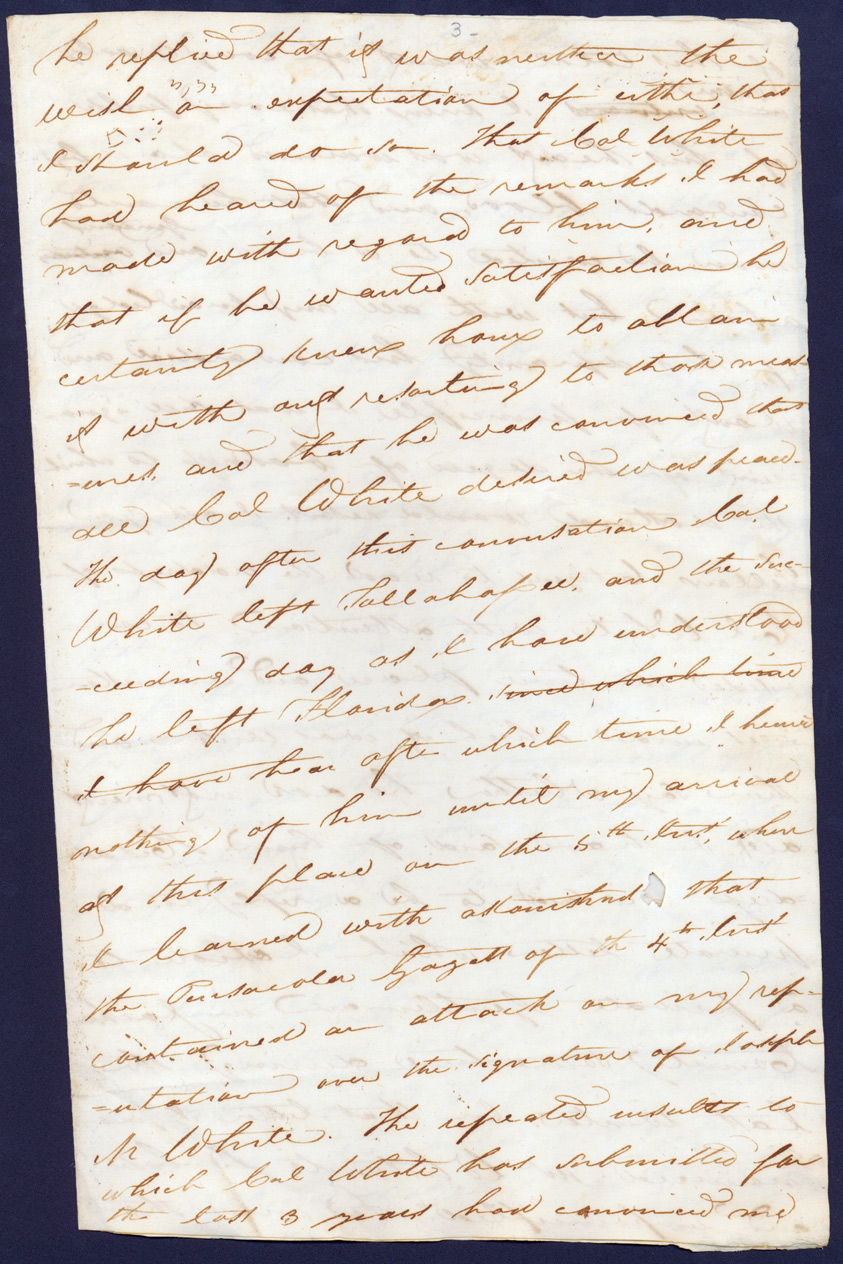 3-
he replied that it was neither the
wish or expectation of either, that
I should do so. That Col White
had heard of the remarks I had
made with regard to him, and
that if he wanted satisfaction he
certainly knew how to obtain
it with out resorting to those meas-
=ures, and that he was convinced that
all Col White desired was peace.
The day after this conversation Col.
White left Tallahassee. and the suc-
-ceeding day as I have understood
he left Florida. since which time
I have hear after which time I heard
nothing of him until my arrival
at this place on the 5th Inst, when
I learned with astonishmt that
the Pensacola Gazett of the 4th Inst
contained an attack on my rep-
=utation over the signature of Joseph
M White. The repeated insults to
which Col White has submitted for
the last 3 years had convinced me